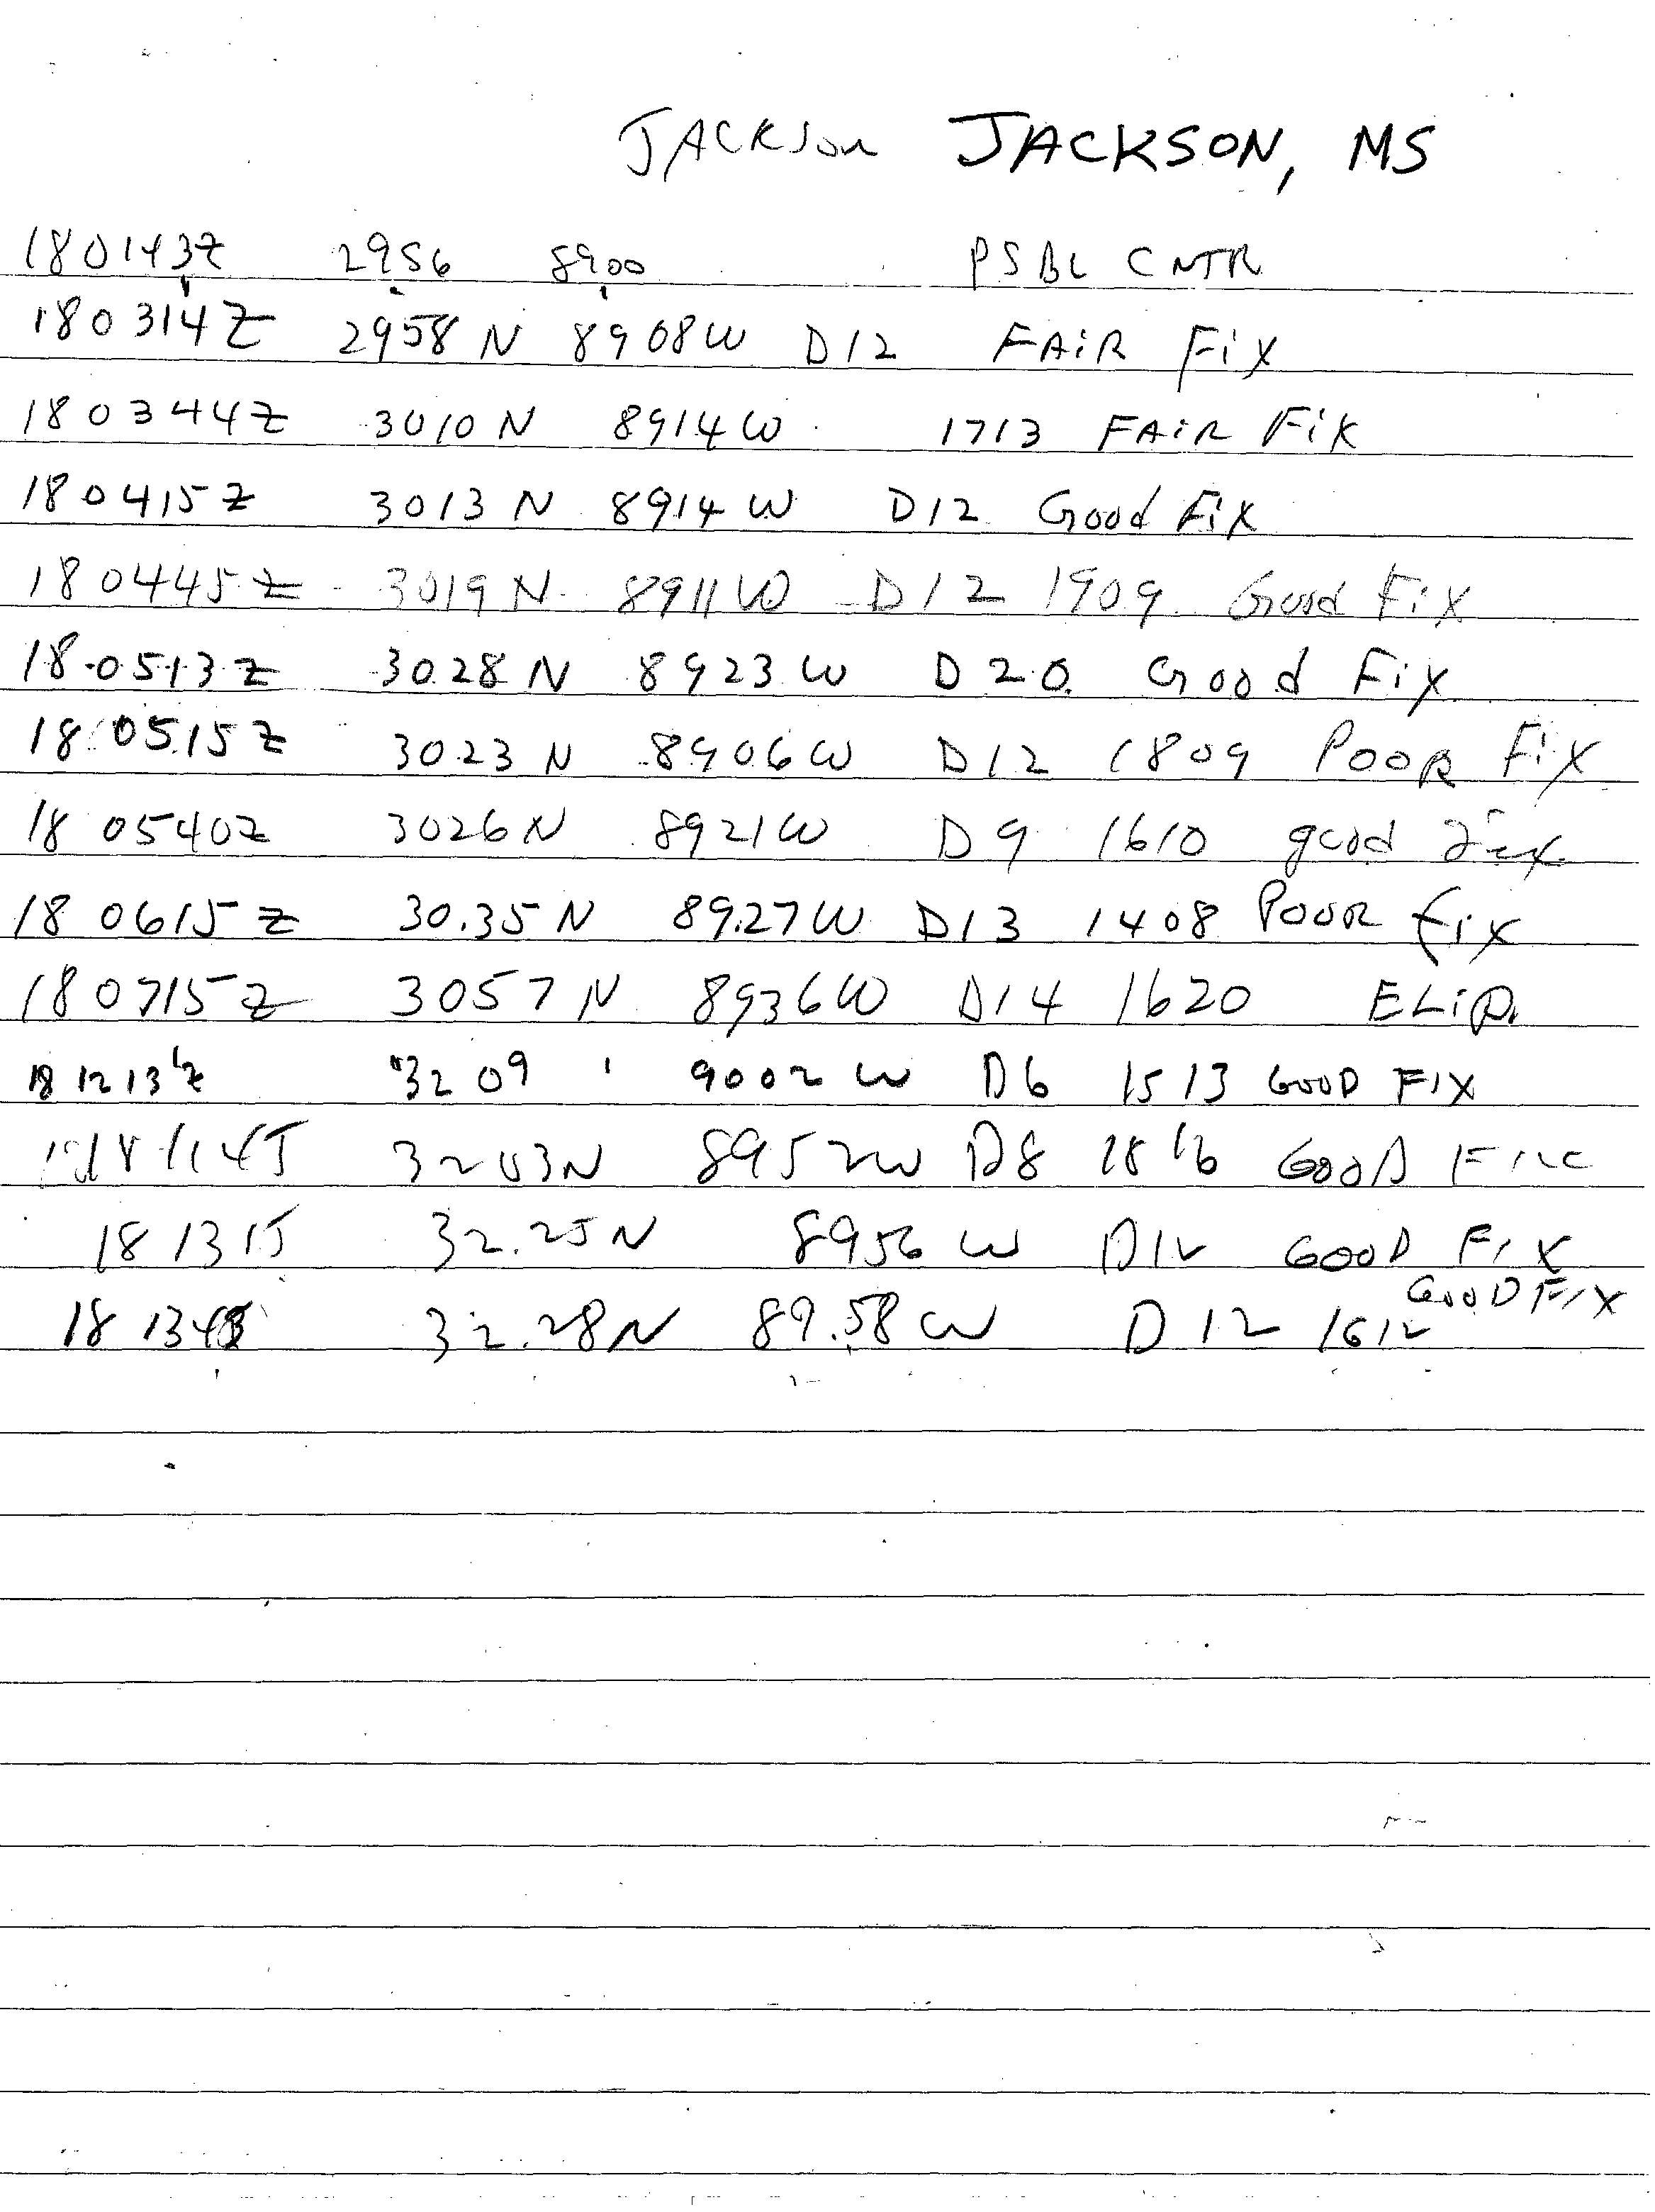 JACKSON JACKSON, MS
180143Z 2956 8900 PSBL CNTR
180314Z 2958 N 8908W D12 FAiR FiX
180344Z 3010 N 8914W 1713 FAiR FiX
180415Z 3013 N 8914 W D12 Good FiX
180445Z 3019 N 8911W D12 1909 Good FiX
18 0513Z 3028 N 8923 W D20 Good FiX
18 0515Z 3023 N 8906W D12 1809 POOR FiX
18 0540Z 3026N 8921W D9 1610 good fix
18 0615Z 30.35 N 89.27W D13 1408 POOR fix
180715Z 3057 N 8936W D14 1620 ELiP.
18 1213Z 3209 9002 W D6 1513 GOOD FIX
3203N 8952W D8 1816 GOOD
18 1315 32.25N 8956 W D12 GOOD FIX
18 32.28N 89.58W D12 1612 GOOD FIX